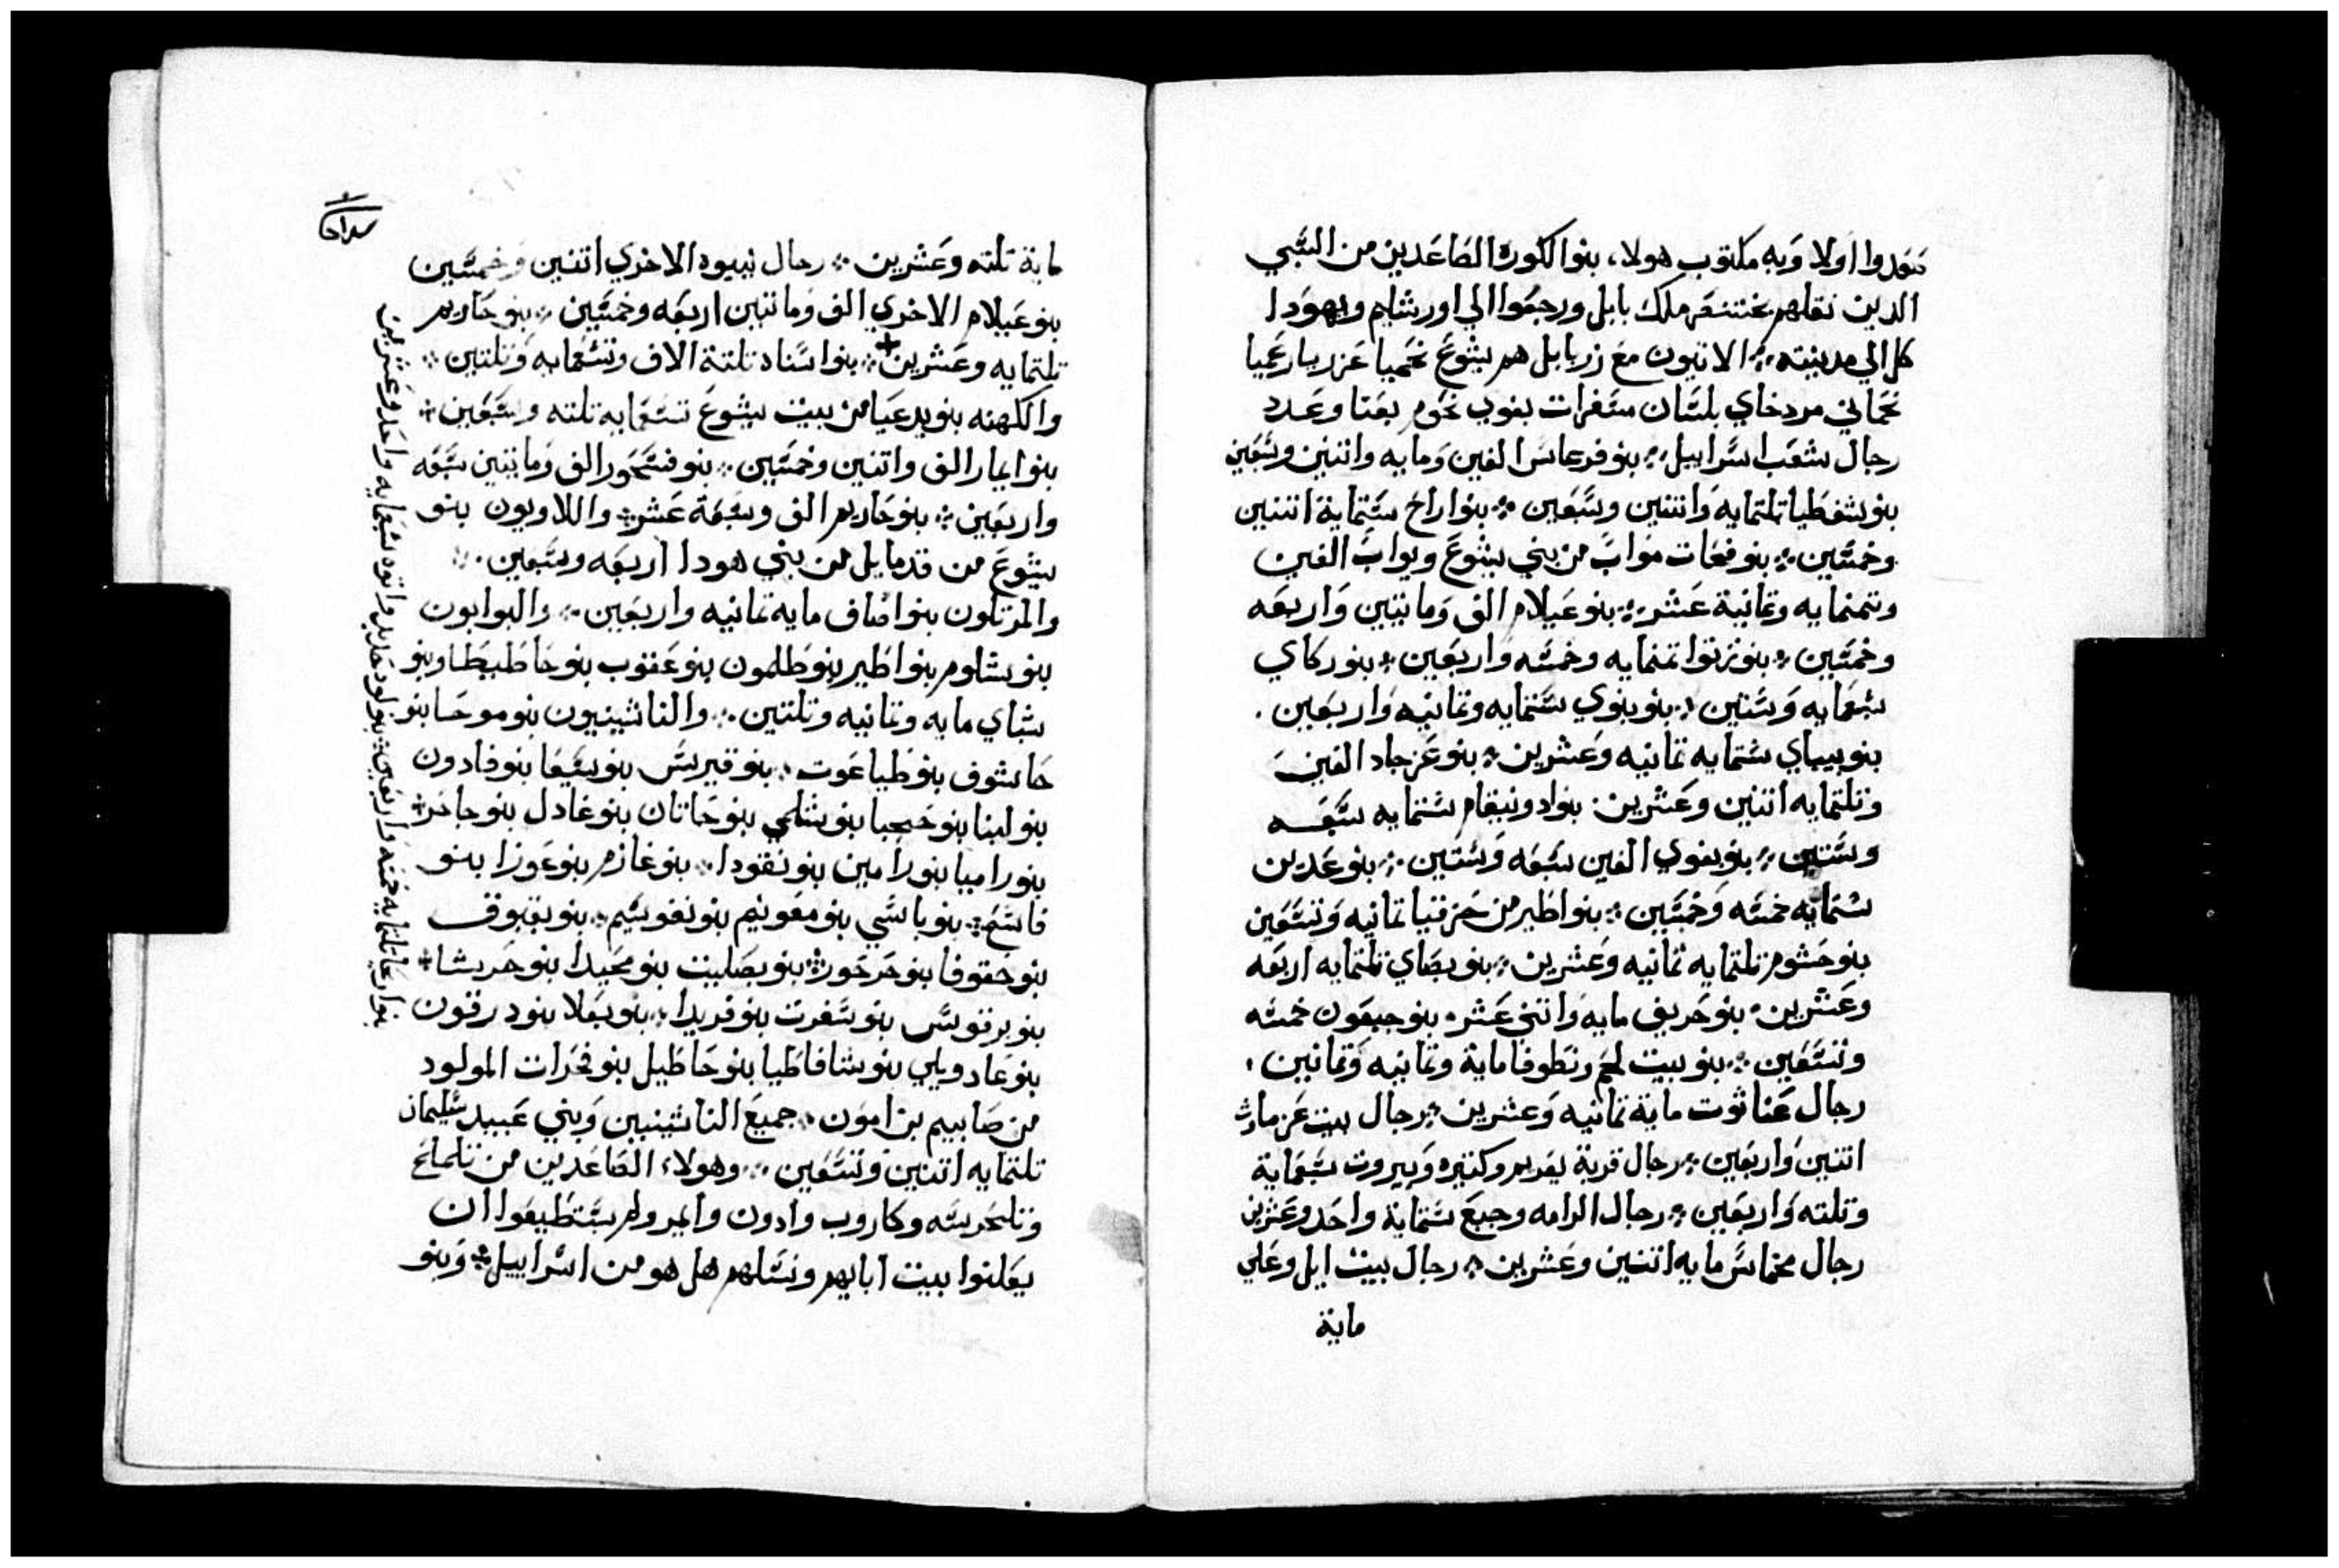 صعدوا اولا وبه مكتوب هولاء بنوا الكورة الصاعدين من السبي
الدين نقلهم بختنصر ملك بابل ورجعوا الي اورشليم ويهودا
كل الي مدينته ܀ الاتيون مع زربابل هم يشوع نحميا عزريا رعميا
نحماني مردخاي بلسان مسفرات بغوي نحوم بعنا وعدد
رجال شعب اسراييل ܀ بنو فرعاس الفين ومايه واتنين وسبعين
بنو شفطيا تلتمايه واتنين وسبعين ܀ بنو اراخ ستماية اتنين
وخمسين ܀ بنو فعات مواب من بني يشوع ويواب الفين
وتمنمايه وتمانية عشر ܀ بنو عيلام الف ومايتين واربعه
وخمسين ܀ بنو زتوا تمنمايه وخمسه واربعين ܀ بنو زكاي
سبعمايه وستين ܀ بنو بنوي ستمايه وتمانيه واربعين .
بنو بيباي ستمايه تمانيه وعشرين ܀ بنو عزجاد الفين
وتلتمايه اتنين وعشرين ܀ بنو ادونيقام ستمايه سبعه
وستين ܀ بنو بغوي الفين سبعه وستين ܀ بنو عدين
ستمايه خمسه وخمسين ܀ بنو اطير من حزقيا تمانيه وتسعين
بنو حشوم تلتمايه تمانيه وعشرين ܀ بنو بصاي تلتمايه اربعه
وعشرين ܀ بنو حريف مايه واتني عشر ܀ بنو جبعون خمسه
وتسعين ܀ بنو بيت لحم ونطوفا ماية وتمانيه وتمانين ،
رجال عناثوت ماية تمانيه وعشرين ܀ رجال بيت عزماوث
اتنين واربعين ܀ رجال قرية يعريم وكتيره وبيروت سبعماية
وتلته واربعين ܀ رجال الرامه وجبع ستماية واحد وعشرين
رجال مخماس مايه اتنين وعشرين ܀ رجال بيت ايل وعلي
ماية
ماية تلته وعشرين ܀ رجال نيبود الاخري اتنين وخمسين
بنو عيلام الاخري الف ومايتين اربعه وخمسين ܀ بنو حاريم
تلتمايه وعشرين + ܀ بنوا سناه تلتة الاف وتسعمايه وتلتين ܀
والكهنه بنو يدعيا من بيت يشوع تسعمايه تلته وسبعين ܀
بنوا ايمار الف واتنين وخمسين ܀ بنو فسحور الف ومايتين سبعه
واربعين ܀ بنو حاريم الف وسبعة عشر ܀ واللاويون بنو
يشوع من قدمايل من بني هودا اربعه وسبعين ܀
والمرتلون بنوا اضاف مايه تمانيه واربعين ܀ والبوابون
بنو شلوم بنو اطير بنو طلمون بنو عقوب بنو حاطيطا وبنو
شباي مايه وتمانيه وتلتين ܀ والناثينيون بنو موحا بنو
حاشوف بنو طياعوت ܀ بنو قيريس بنو سيعا بنو فادون
بنو لبنا بنو حجبا بنو شلمي بنو حانان بنو غادل بنو جاحر ܀
بنو راميا بنو رامين بنو نقودا ܀ بنو غازم بنو عوزا بنو
فاسح ܀ بنو باسي بنو معونيم بنو نفوسيم ܀ بنو بقبوق
بنو حقوفا بنو حرحور ܀ بنو بصليت بنو محيدا بنو حرشا ܀
بنو برقوس بنو سفرت بنو فريدا ܀ بنو يعلا بنو درقون
بنو غاد ويلي بنو شافاطيا بنو حاطيل بنو فخرات المولود
من صابييم بن امون ܀ جميع الناثينيين وبني عبيد سليمان
تلتمايه اتنين وتسعين ܀ وهولاء الصاعدين من تلملح
وتلحرسه وكاروب وادون وايمر ولم يستطيعوا ان
يعلنوا بيت ابايهم ونسلهم هل هو من اسراييل ܀ وبنو
بنو اريحا تلتمايه خمسه واربعين ܀ بنو لود حاديد واتوه سبعمايه واحد وعشرين